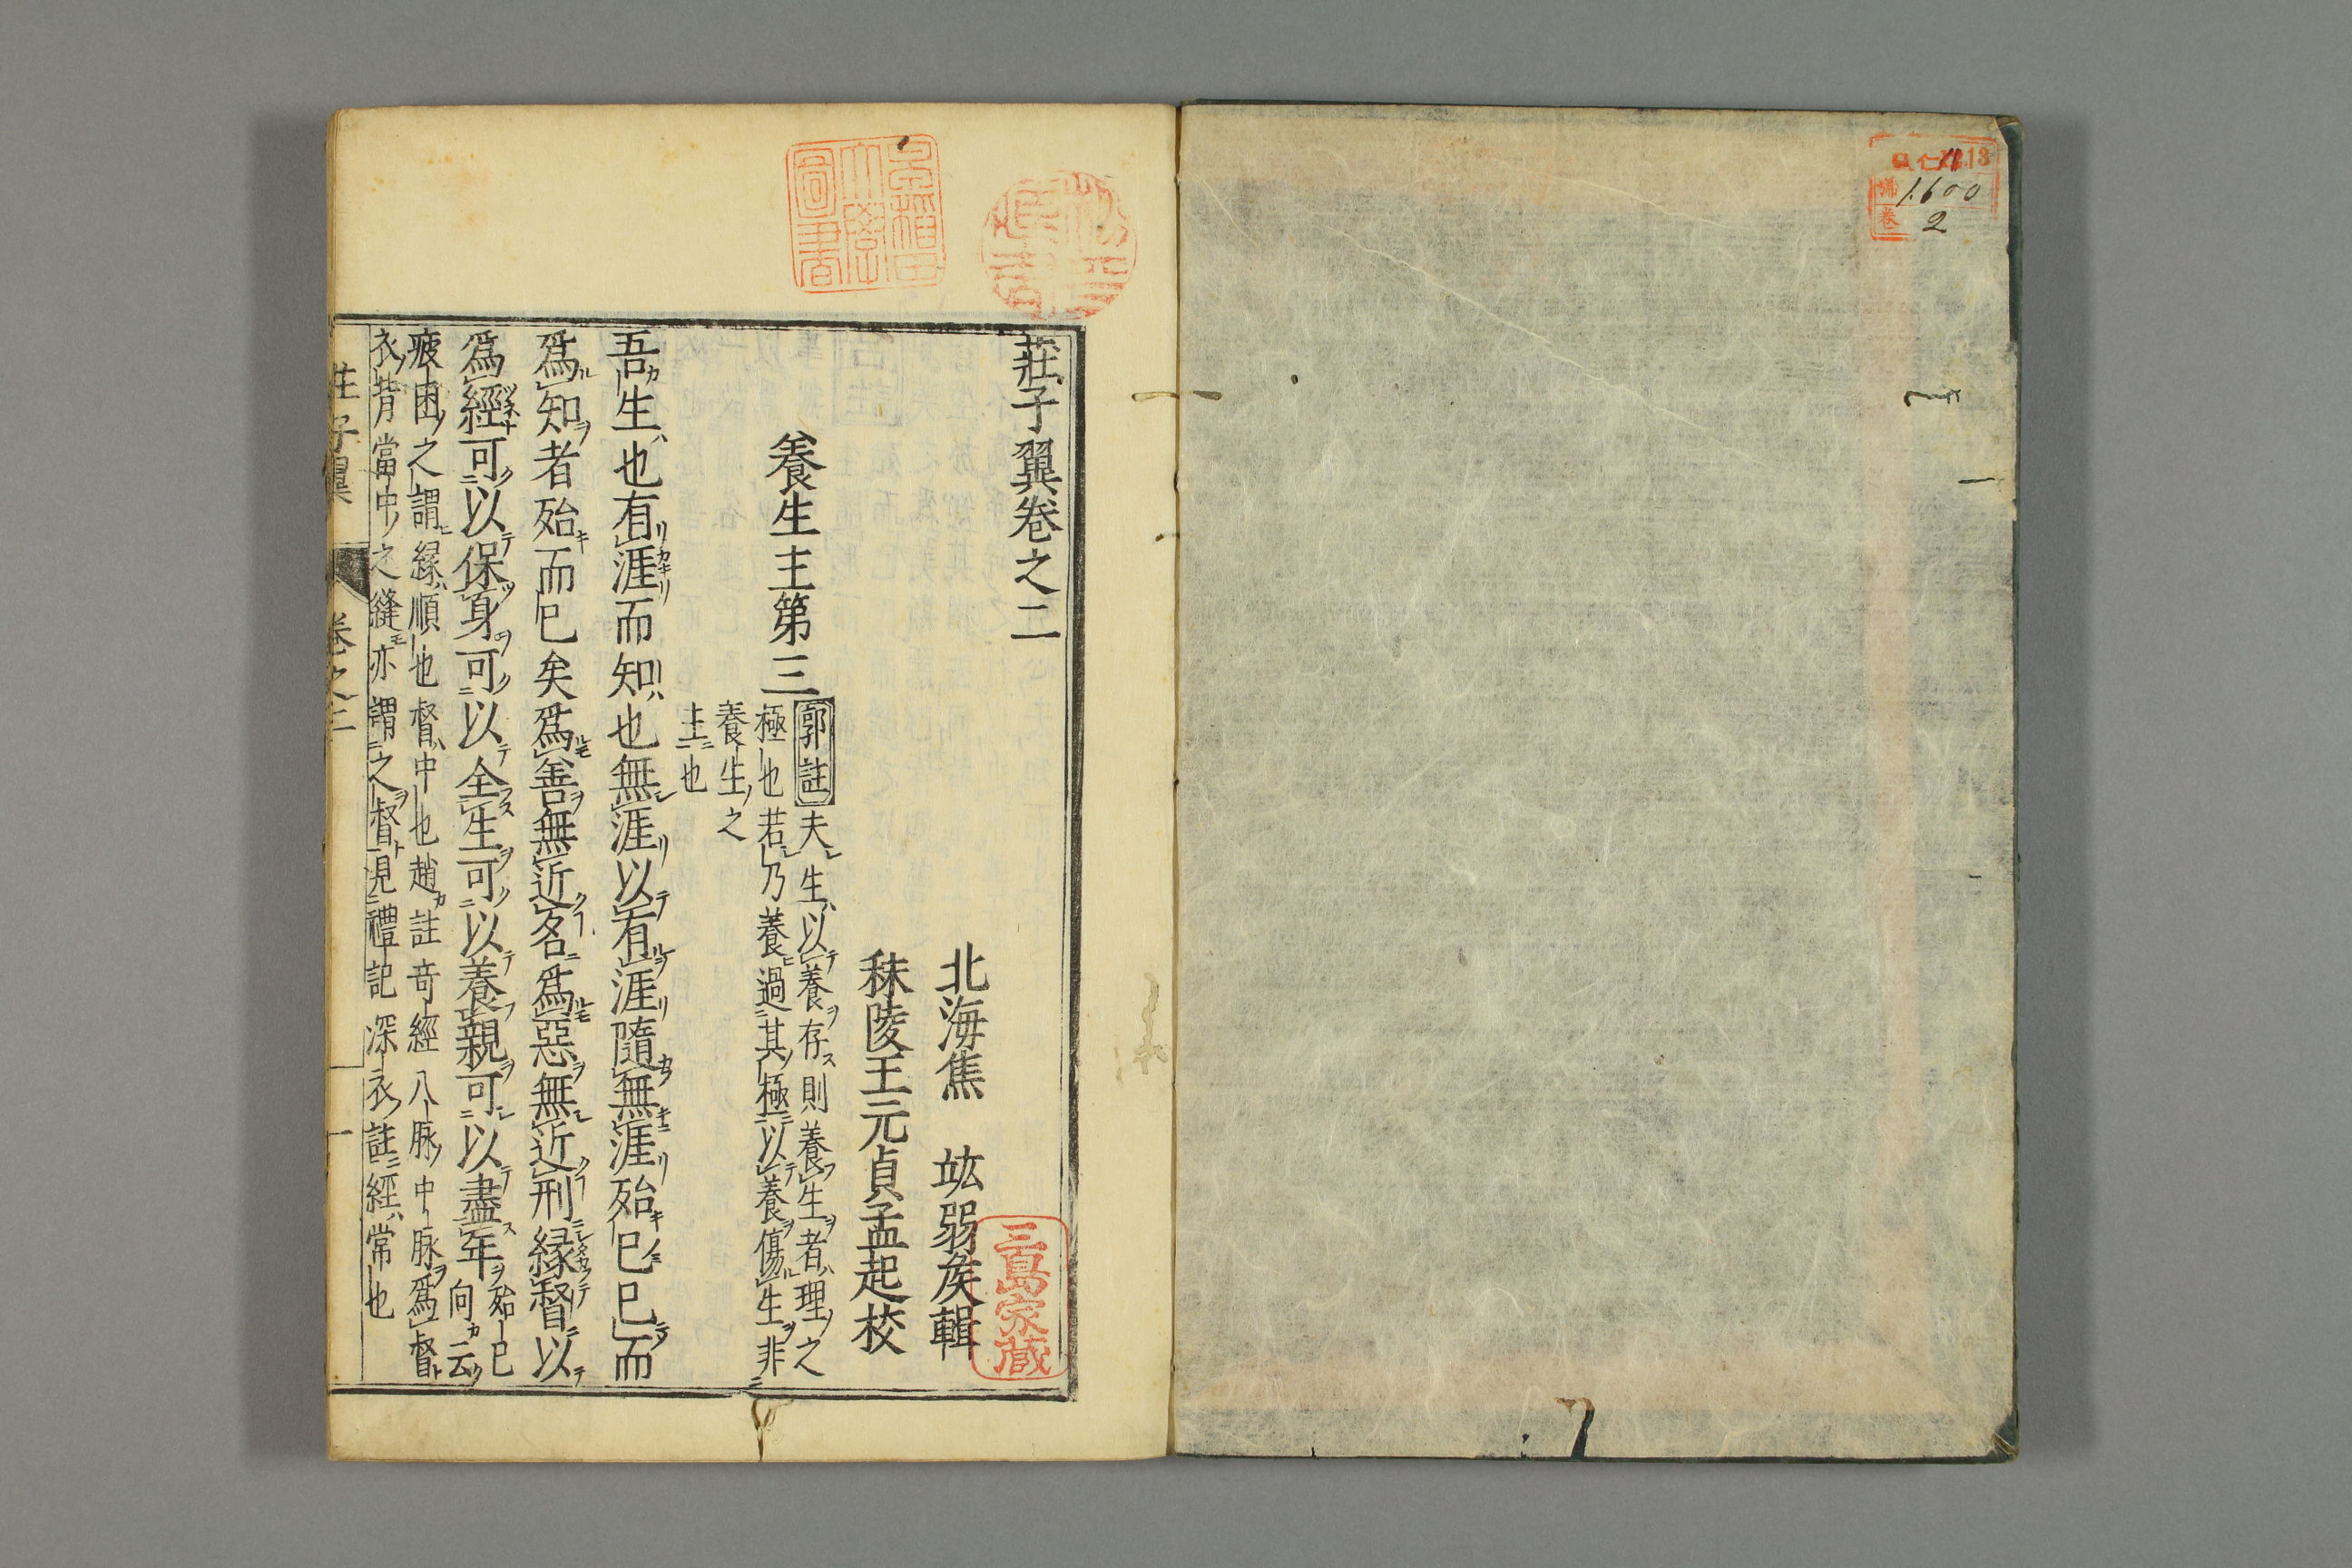 莊子翼卷之二
北海焦　竑弱矦輯
秣陵王元貞孟起校
養生主第三
郭註夫生以養存則養生者理之
極也若乃養過其極以養傷生非
養生之
主也
吾生也有涯而知也無涯以有涯隨無涯殆已已而
爲知者殆而已矣爲善無近名爲惡無近刑縁督以
爲經可以保身可以全生可以養親可以盡年
殆已
向云
疲困之謂縁順也督中也趙註奇經八脉中脉爲督
衣背當中之縫亦謂之督見禮記深衣註經常也
莊子翼
卷之二
一
早稲田大學圖書
三島家蔵
1600
2